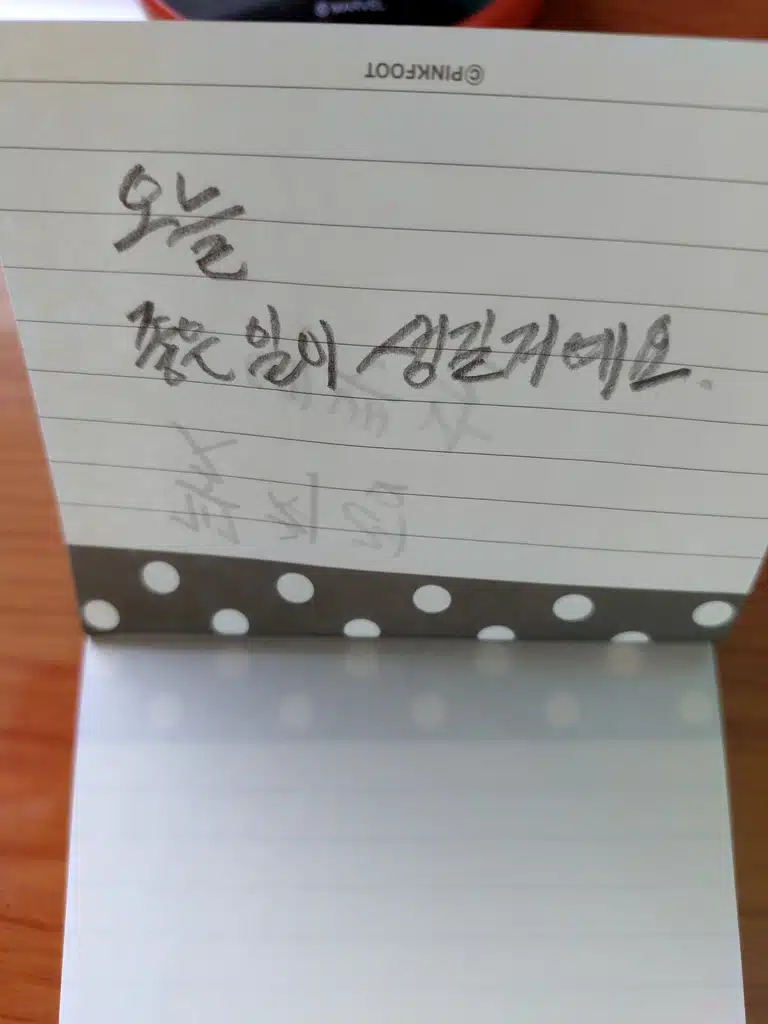 © MARVEL
©PINKFOOT
오늘
좋은 일이 생길거예요.